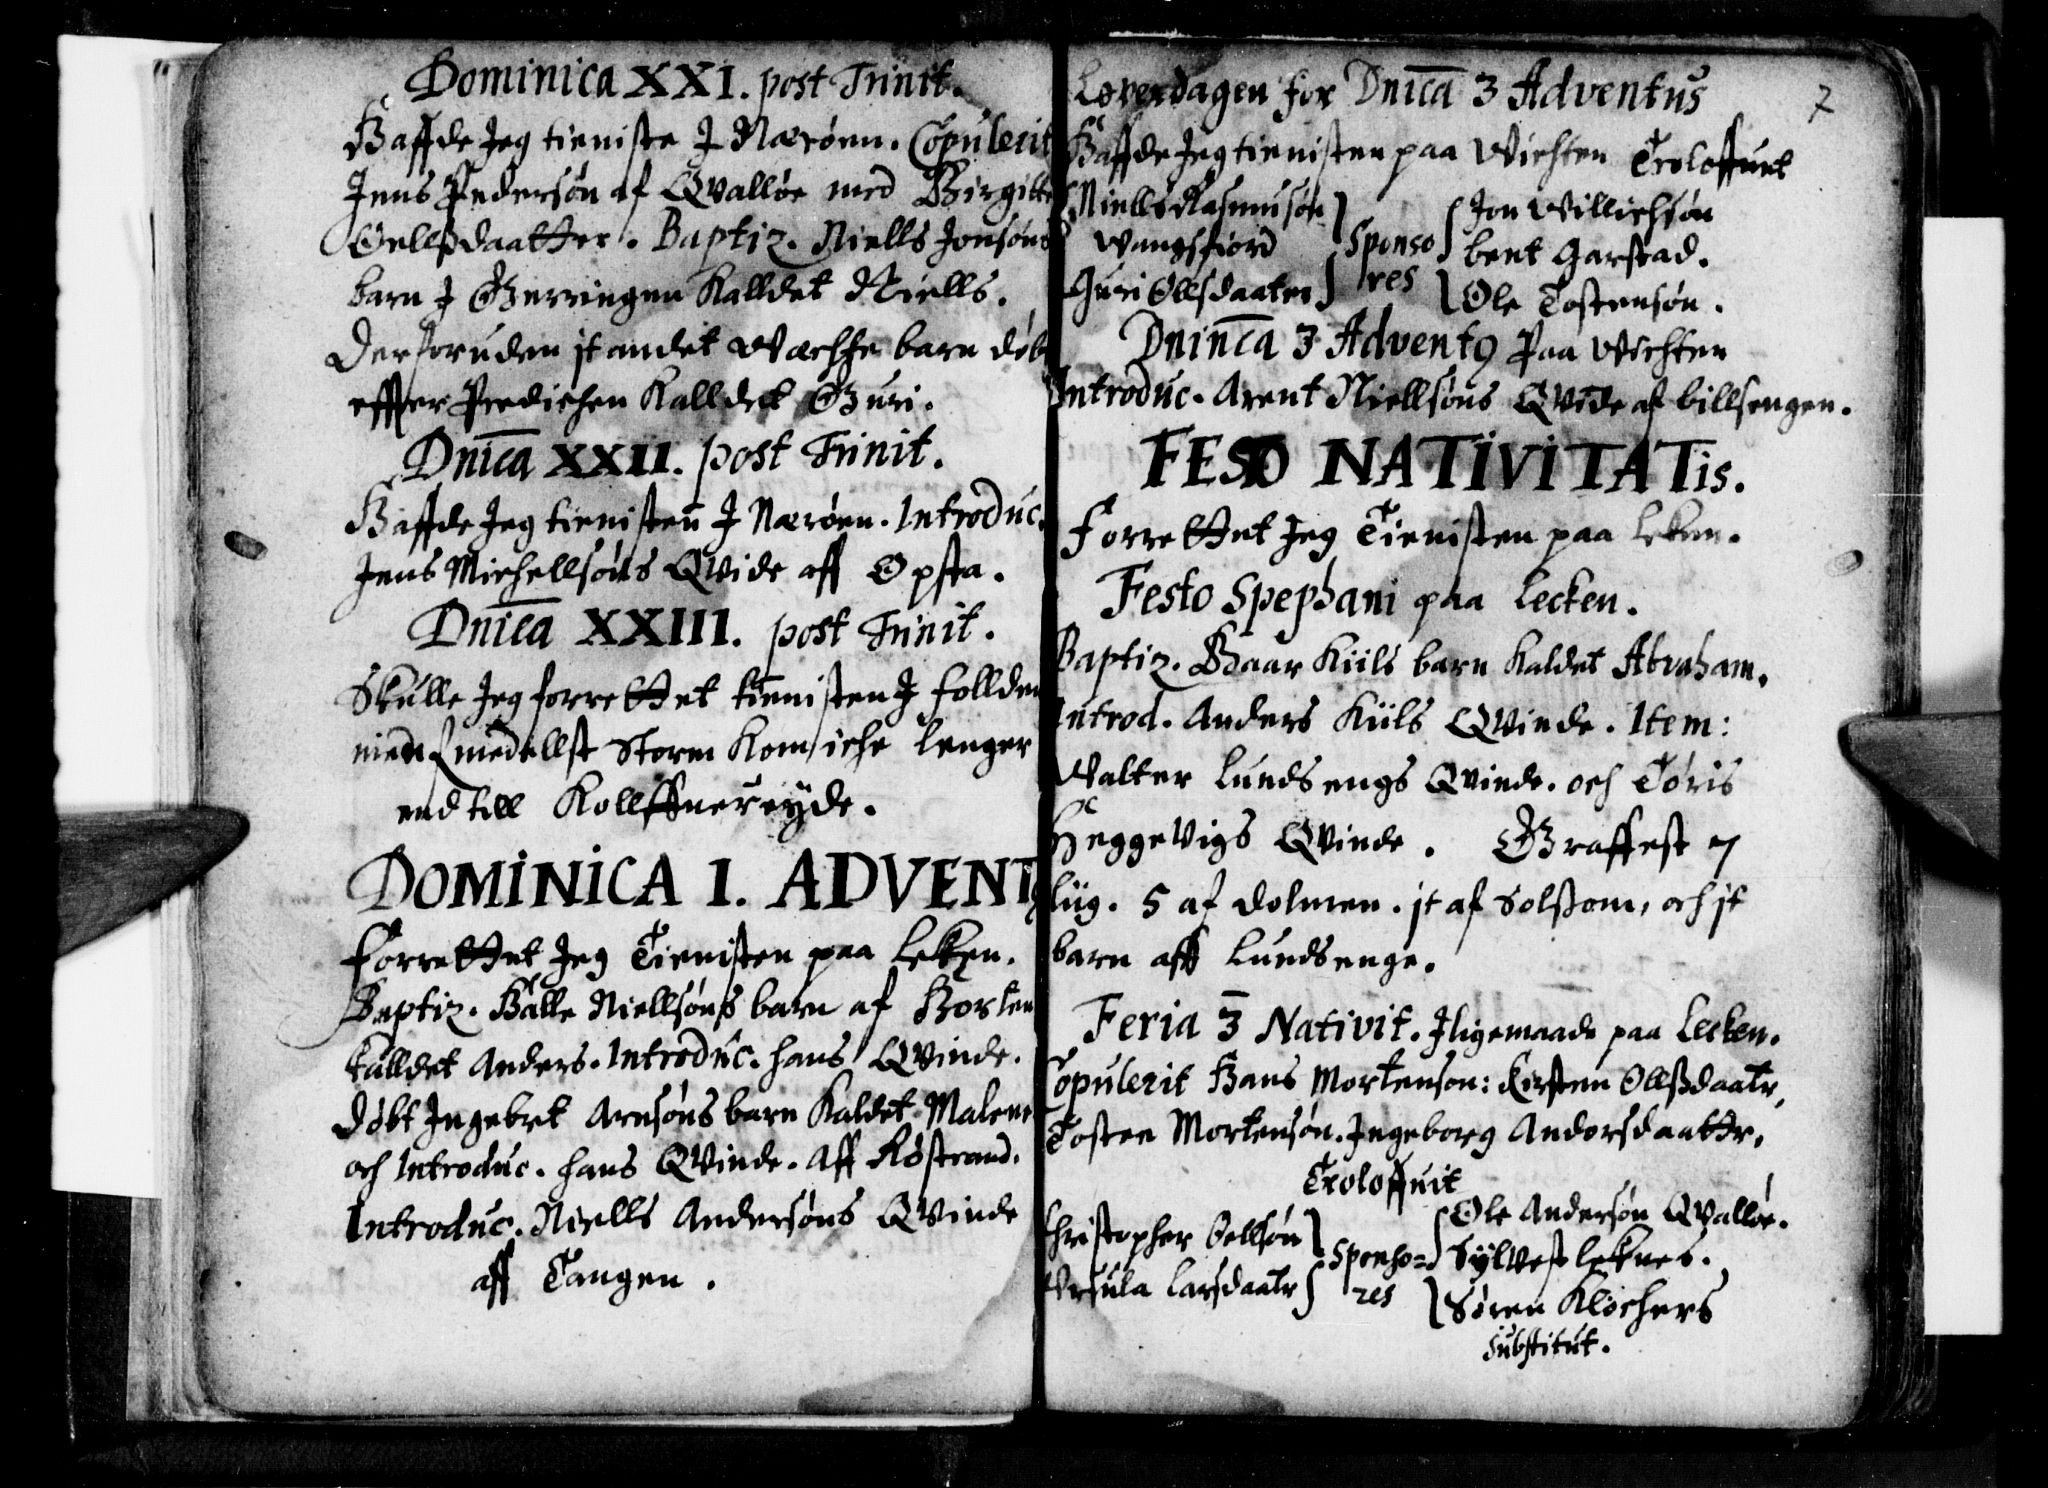 Dominica XXI. post Trinit.
Haffde Jeg tieniste J Nærøen. Copulerit
Jens Pedersøn af Qvalløe med Birgitte
Oellsdaatter. Baptiz. Niells Jonsøns
barn J Gierringen Kalldet Niells.
Der foruden it andet Wechhe barn døbt
effter Predichen Kalldet Guri.
Dnica XXII. post Trinit.
Haffde Jeg tienisten J Nærøen. Introduc.
Jens Michellsøns Qvide aff Opsta.
Dnica XXIII. post Trinit.
Skulle Jeg forrettet tienisten J follden
med Storm Kom iche lenger
end till Kolffuereyde.
DOMINICA I. ADVENT9
Forrettet Jeg Tienisten paa Leken.
Baptiz. Halle Niellsøns barn af Horsten
kalldet Anders. Introduc. hans Qvinde.
Døbt Ingebret Arnsøns barn Kaldet Malene
och Introduc. hans Qvinde. Aff Røstrand.
Introduc. Niells Andersøns Qvinde
aff Tangen.
Løverdagen for Dnica 3 Adventus
7
Haffde Jeg tienisten paa Wichten Troloffuet
Niells Rasmusøn
Wangsfiord
Guri Ollsdaater
Sponso
res
Jon Willichsøn
bent Garstad.
Ole Tostensøn.
Dninca 3 Advent9 Paa Wichten
Introduc. Arent Niellsøns Qvide af billsengen.
FESTO NATIVITATis.
Forrettet Jeg Tienisten paa Leken.
Festo Spephani paa Lecken.
Baptiz. Baar Kiils barn Kaldet Abraham.
Introd. Anders Kiils Qvinde. Item:
Walter Lundsengs Qvinde. och Tøris
Heggevigs Qvinde. Graffest 7
liig. 5 af Dolmen. it af Solssom, och it
barn aff Lundsenge.
Feria 3 Nativit. Jligemaade paa Lecken.
Copulerit Hans Mortenson: Kirsten Ollssdaatr,
Tosten Mortensøn. Ingeborg Andersdaattr,
Troloffuit
Christopher Oellsøn
Ursula Larsdaatr
Sponso=
res
Ole Andersøn Qvalløe.
Sylvest Leknes.
Søren Klochers
Substitut.